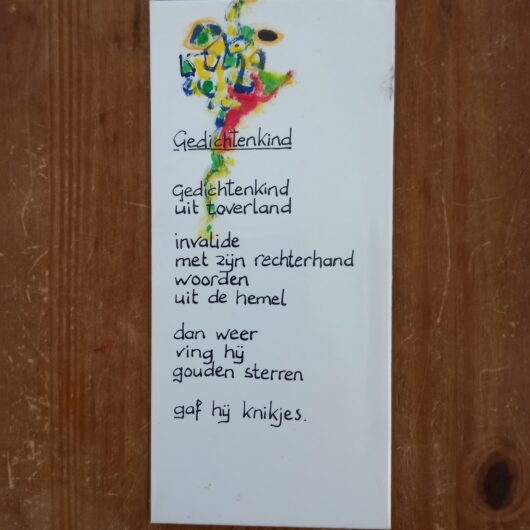 Gedichtenkind
gedichtenkind
uit toverland
invalide
met zijn rechterhand
woorden
uit de hemel
dan weer
ving hij
gouden sterren
gaf hij knikjes.